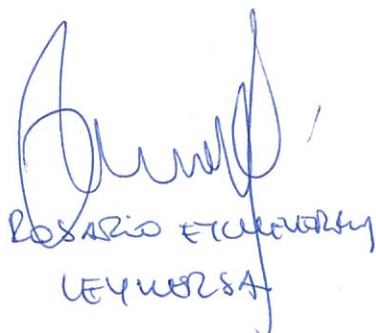 ROSARIO ETCHEVERRY
LEYMERSA